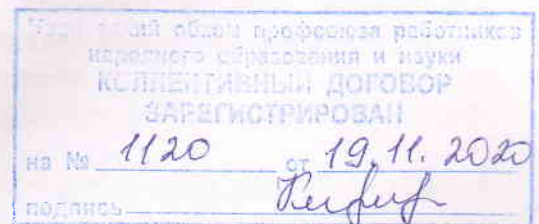 обком профсоюза работников
народного образования и науки
КОЛЛЕКТИВНЫЙ ДОГОВОР
ЗАРЕГИСТРИРОВАН
на № 1120 от 19.11.2020
подпись